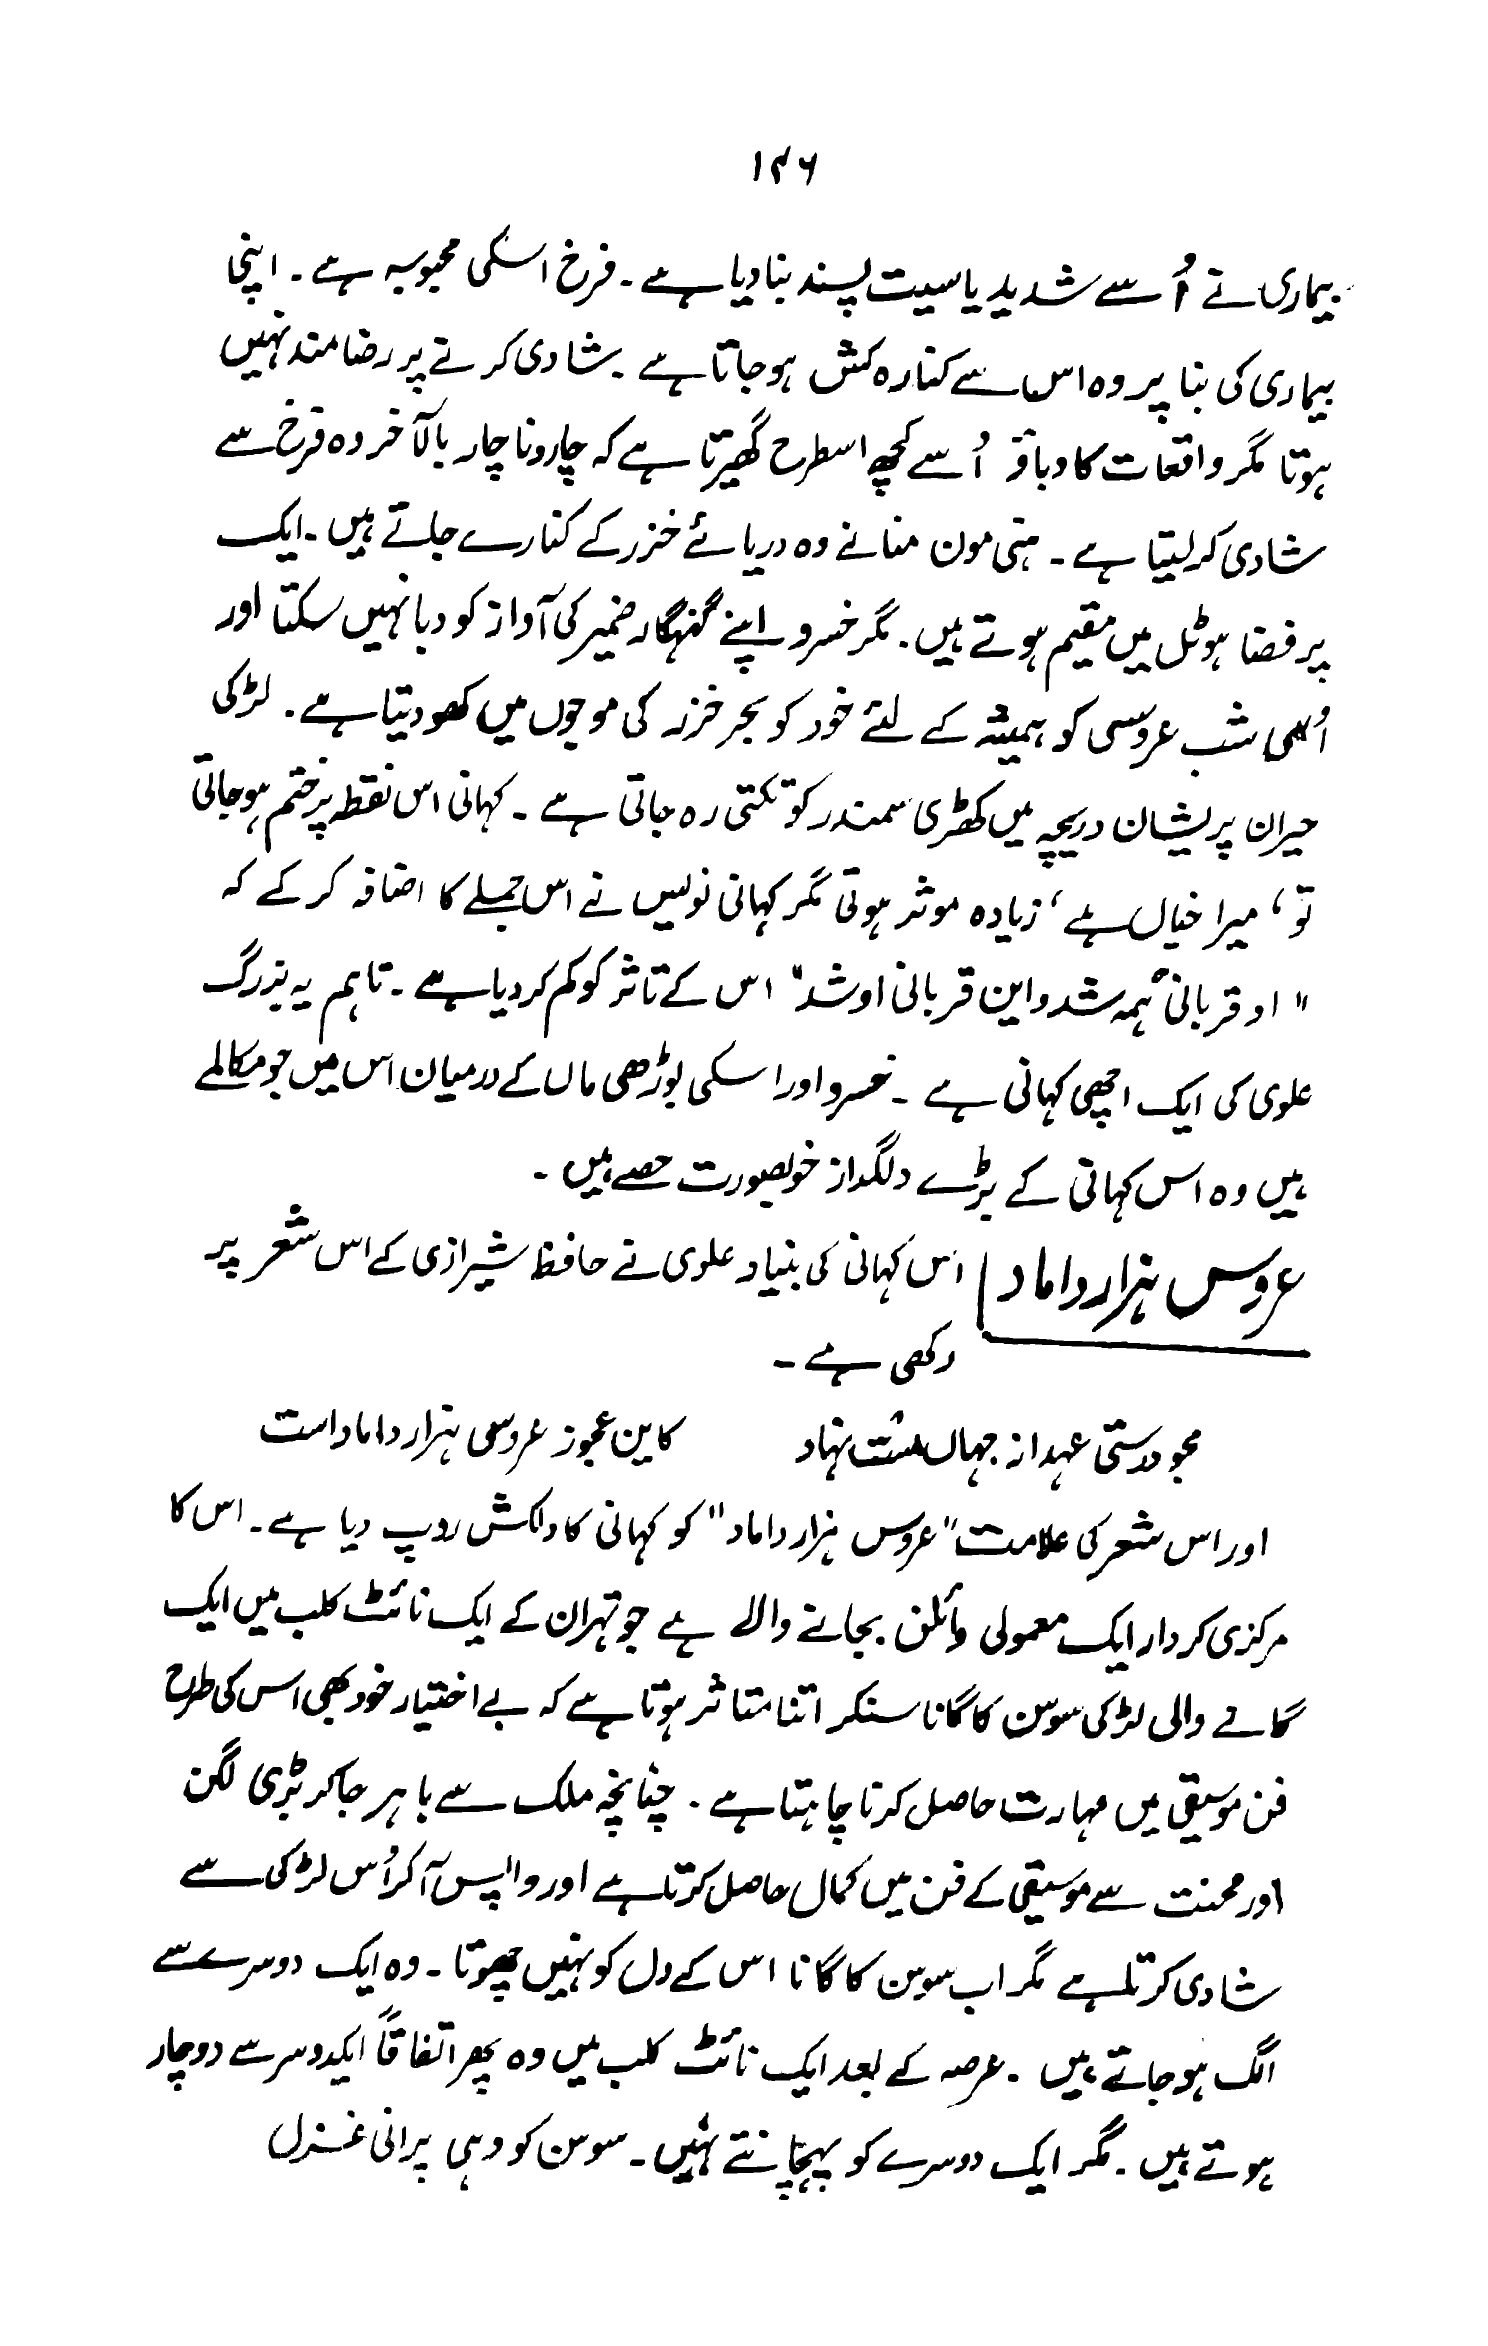 ۱۴۶
بیماری نے اُسے شدید یاسیت پسند بنا دیا ہے۔ فرخ اسکی محبوبہ ہے۔ اپنی
بیماری کی بنا پر وہ اس سے کنارہ کش ہو جاتا ہے۔ شادی کرنے پر رضامند نہیں
ہوتا مگر واقعات کا دباؤ اُسے کچھ اسطرح گھیرتا ہے کہ چاروناچار بالآخر وہ فرخ سے
شادی کر لیتا ہے۔ ہنی مون منانے وہ دریائے خزر کے کنارے جاتے ہیں۔ ایک
پر فضا ہوٹل میں مقیم ہوتے ہیں۔ مگر خسرو اپنے گنہگار ضمیر کی آواز کو دبا نہیں سکتا اور
اُسی شب عروسی کو ہمیشہ کے لئے خود کو بحر خزر کی موجوں میں کھو دیتا ہے۔ لڑکی
حیران پریشان دریچہ میں کھڑی سمندر کو تکتی رہ جاتی ہے۔ کہانی اس نقطہ پر ختم ہو جاتی
تو، میرا خیال ہے، زیادہ موثر ہوتی مگر کہانی نویس نے اس جملے کا اضافہ کر کے کہ
"او قربانیٔ ہمہ شد و این قربانی او شد" اس کے تاثر کو کم کر دیا ہے۔ تاہم یہ بزرگ
علوی کی ایک اچھی کہانی ہے۔ خسرو اور اسکی بوڑھی ماں کے درمیان اس میں جو مکالمے
ہیں وہ اس کہانی کے بڑے دلگداز خوبصورت حصے ہیں۔
عروس ہزار داماد اس کہانی کی بنیاد علوی نے حافظ شیرازی کے اس شعر پر
رکھی ہے۔
مجو درستی عہد از جہاں سست نہاد کاین عجوز عروسی ہزار داماد است
اور اس شعر کی علامت "عروس ہزار داماد" کو کہانی کا دلکش روپ دیا ہے۔ اس کا
مرکزی کردار ایک معمولی وائلن بجانے والے ہے جو تہران کے ایک نائٹ کلب میں ایک
گانے والی لڑکی سوسن کا گانا سنکر اتنا متاثر ہوتا ہے کہ بے اختیار خود بھی اس کی طرح
فن موسیقی میں مہارت حاصل کرنا چاہتا ہے۔ چنانچہ ملک سے باہر جا کر بڑی لگن
اور محنت سے موسیقی کے فن میں کمال حاصل کرتا ہے اور واپس آ کر اُس لڑکی سے
شادی کرتا ہے مگر اب سوسن کا گانا اس کے دل کو نہیں چھوتا۔ وہ ایک دوسرے سے
الگ ہو جاتے ہیں۔ عرصہ کے بعد ایک نائٹ کلب میں وہ پھر اتفاقاً ایکدوسرے دوچار
ہوتے ہیں۔ مگر ایک دوسرے کو پہچانتے نہیں۔ سوسن کو وہی پرانی غزل